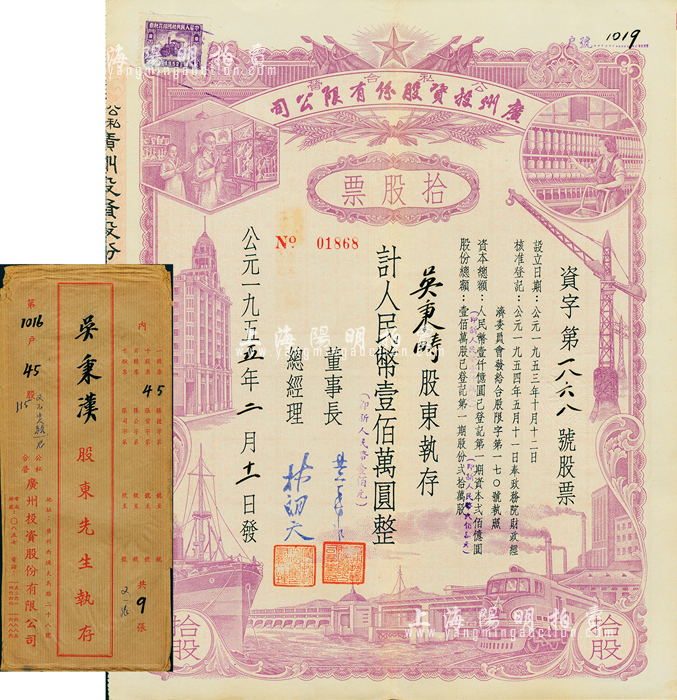 戶號 1019
公私合營
廣州投資股份有限公司
拾股票
資字第一八六八號股票
設立日期：公元一九五三年十月十二日
核准登記：公元一九五四年五月十一日奉政務院財政經
濟委員會發給合股限字第一七〇號執照
資本總額：人民幣壹仟億圓已登記第一期資本弍佰億圓
股份總額：壹佰萬股已登記第一期股份弍拾萬股
吳秉疇股東執存
計人民幣壹佰萬圓整
(即新人民幣壹佰元)
董事長
總經理
林詡天
Nº 01868
公元一九五五年二月十一日發
拾股
拾股
內
45
共9張
吳秉漢股東先生執存
第1016戶45股
公私合營廣州投資股份有限公司
上海陽明拍賣
www.yangmingauction.com
上海陽明拍賣
www.yangmingauction.com
上海陽明拍賣
www.yangmingauction.com